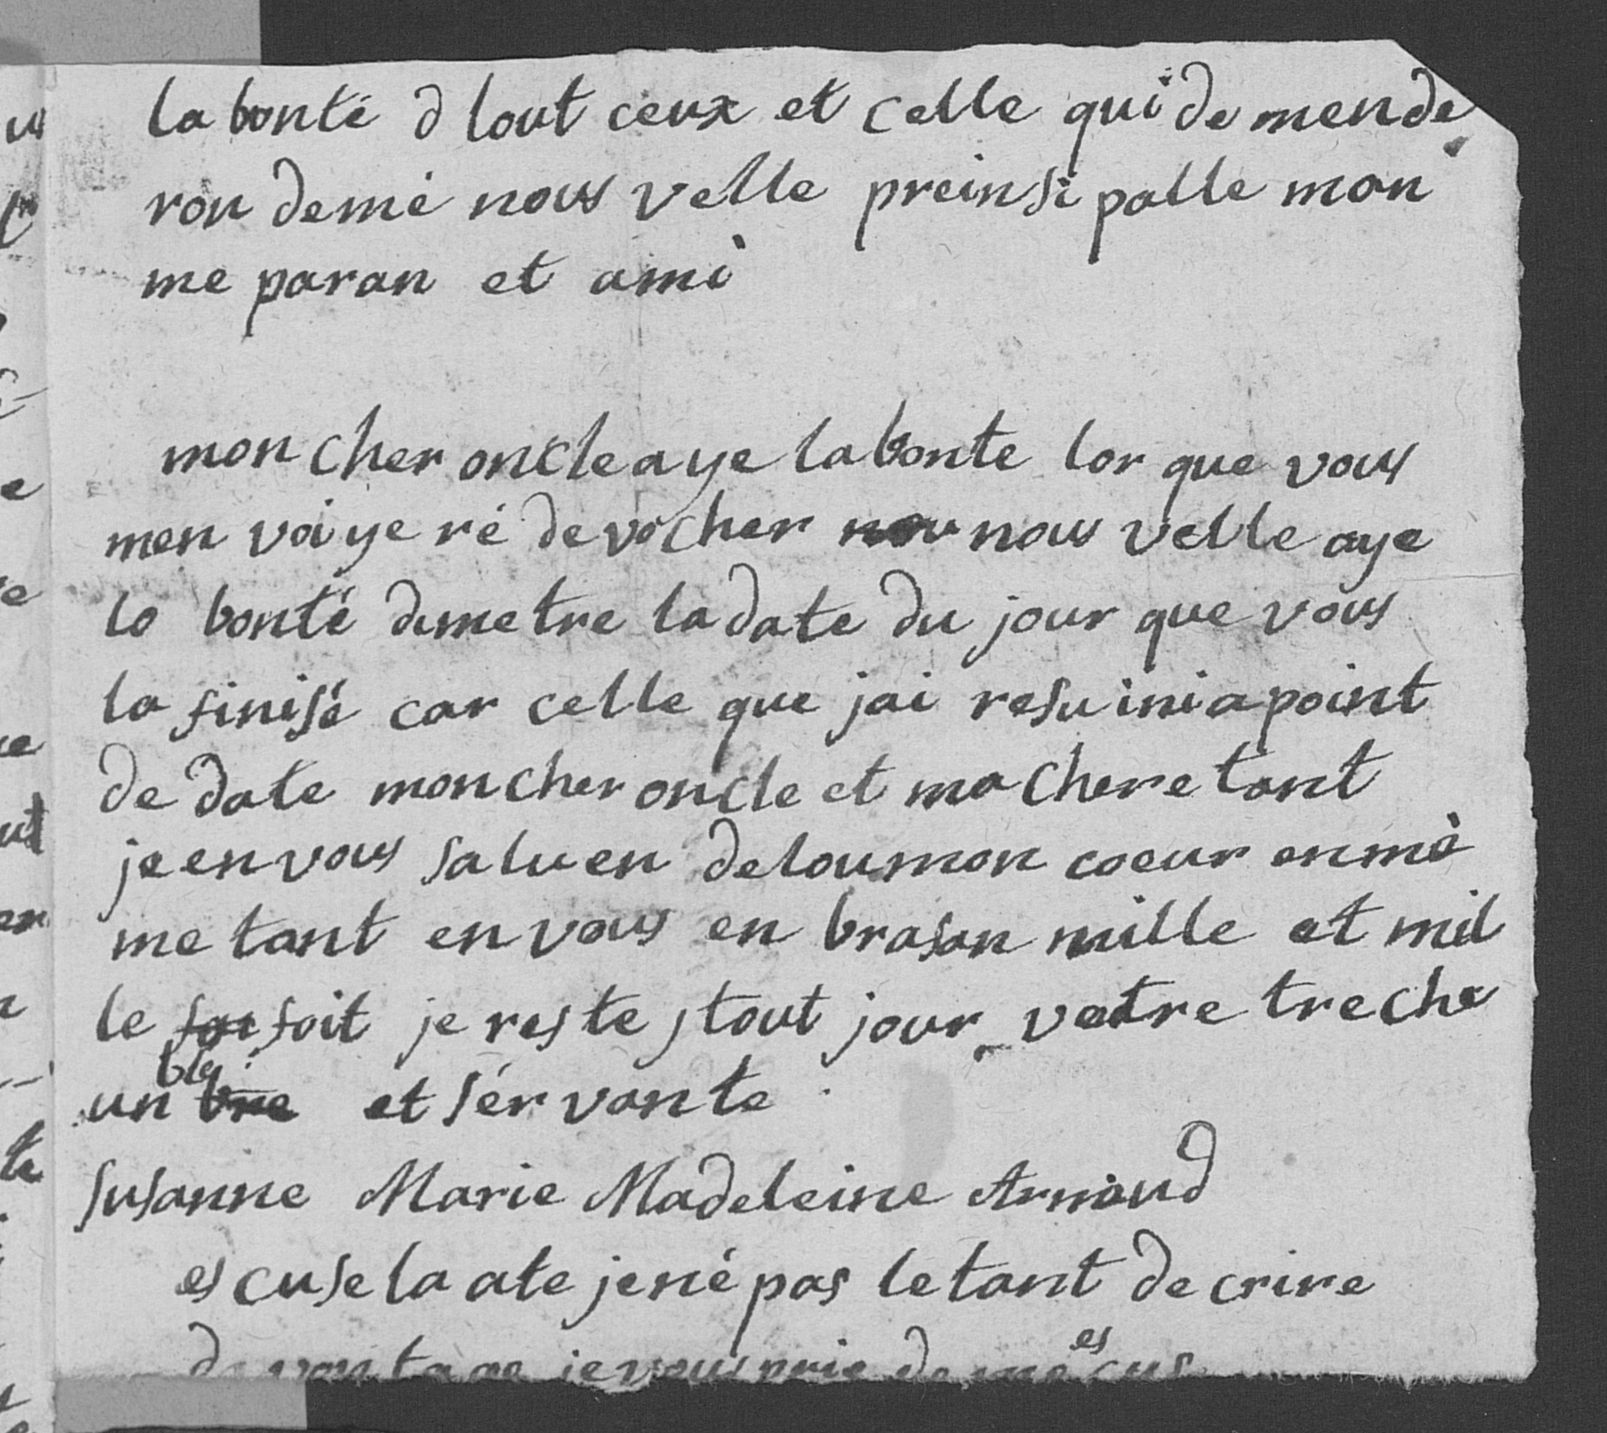 la bonté d tout ceux et celle qui de mende
ron demé nous velle preinsi palle mon
me paran et ami
mon cher oncle aye la bonte lor que vous
men voiye ré de vo cher nou nous velle aye
la bonté de metre la date du jour que vous
la finisé car celle que jai resu ini a point
de date mon cher oncle et ma chere tant
je en vous saluen de tou mon coeur en mè
me tant en vous en brasan mille et mil
le foi foit je reste tout jour votre tre che
un bre ble et servante
Susanne Marie Madeleine Arnaud
es cuse la ate je né pas le tant de crire
da vantage je vous prie de me es cus